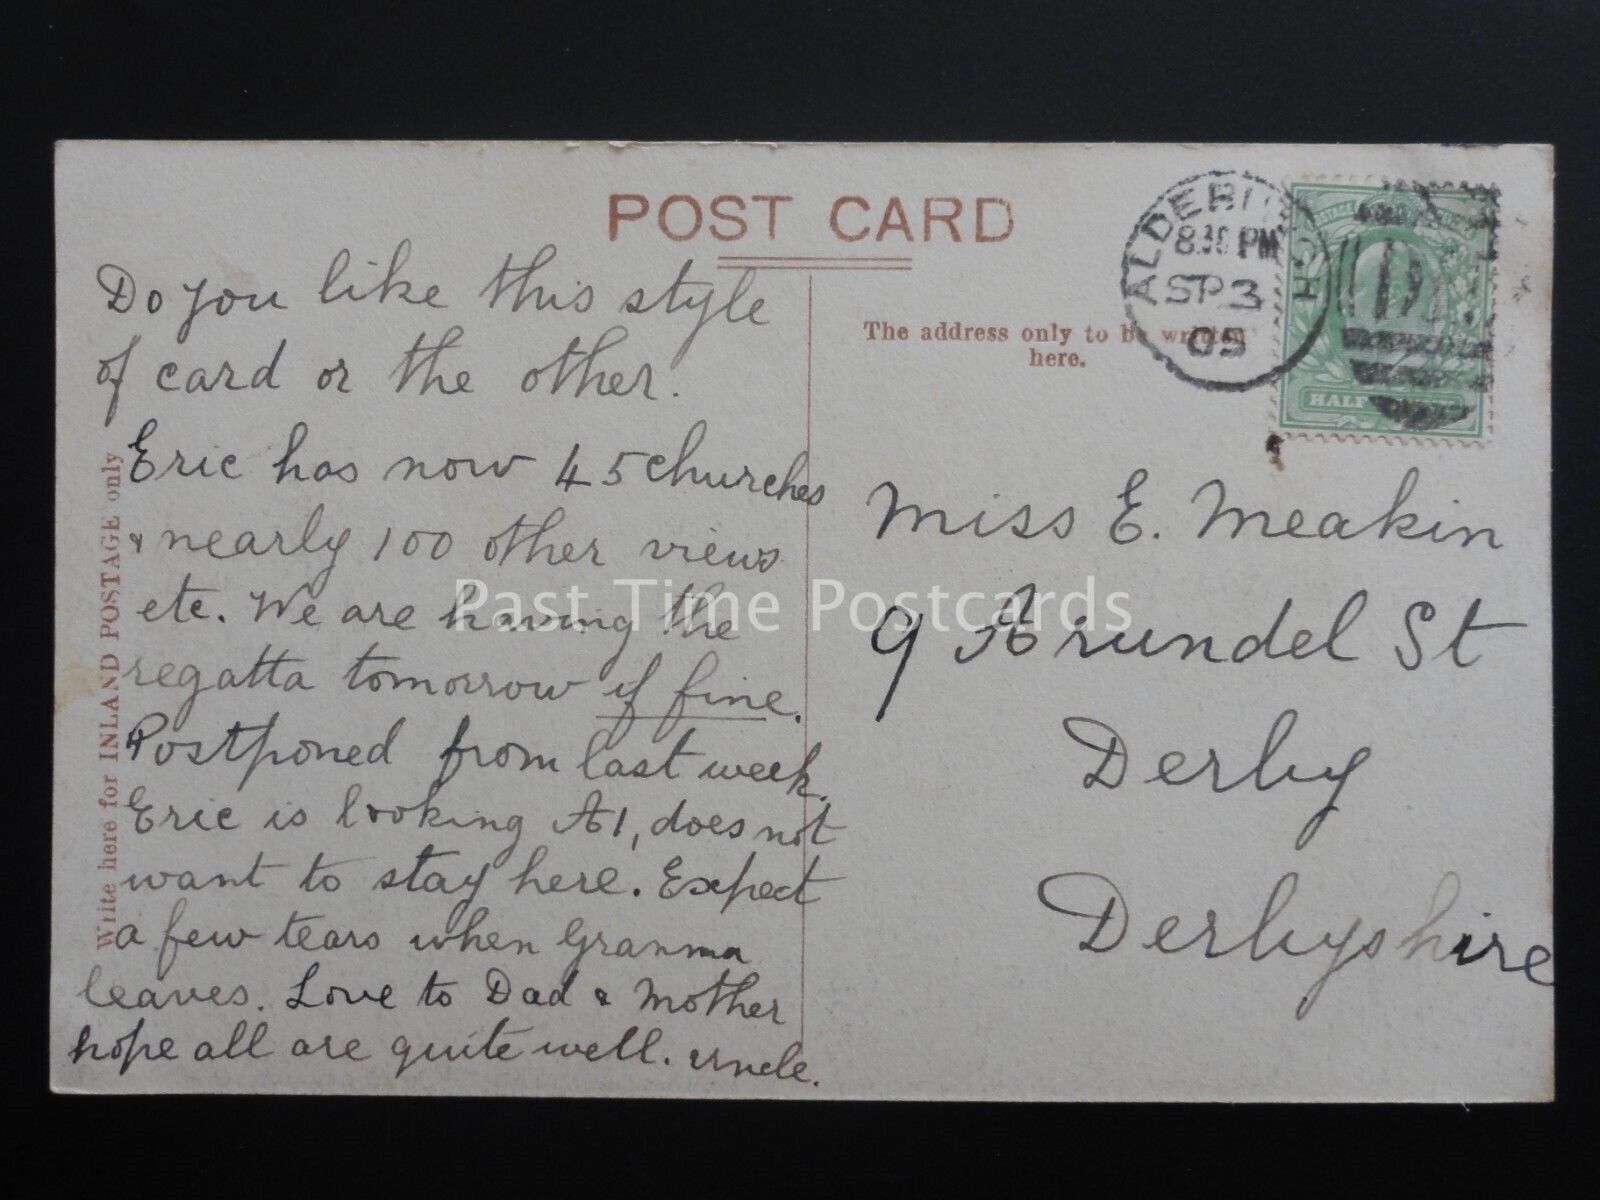 POST CARD
Do you like this style
of card or the other.
Eric has now 45 churches
& nearly 100 other views
etc. We are having the
regatta tomorrow if fine.
Postponed from last week.
Eric is looking A1, does not
want to stay here. Expect
a few tears when Granma
leaves. Love to Dad & Mother
hope all are quite well. Uncle.
Write here for INLAND POSTAGE only
The address only to be written
here.
ALDEBURGH
PM
SP 3
05
HALF
Miss E. Meakin
9 Arundel St
Derby
Derbyshire
Past Time Postcards